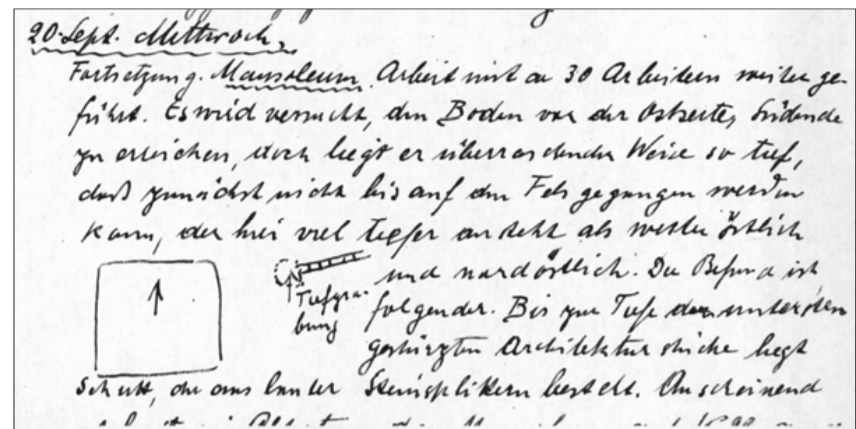 20. Sept. Mittwoch.
Fortsetzung. Mausoleum. Arbeit mit ca 30 Arbeitern weiter ge-
führt. Es wird versucht, den Boden vor der Ostseite, Südende
zu erreichen, doch liegt er überraschender Weise so tief,
daß zunächst nicht bis auf den Fels gegangen werden
kann, der hier viel tiefer ansteht als weiter östlich
und nordöstlich. Der Befund ist
Tiefgra-
bung
folgender. Bis zur Tiefe der untersten
gestürzten Architekturstücke liegt
Schutt, der aus lauter Steinsplittern besteht. Anscheinend